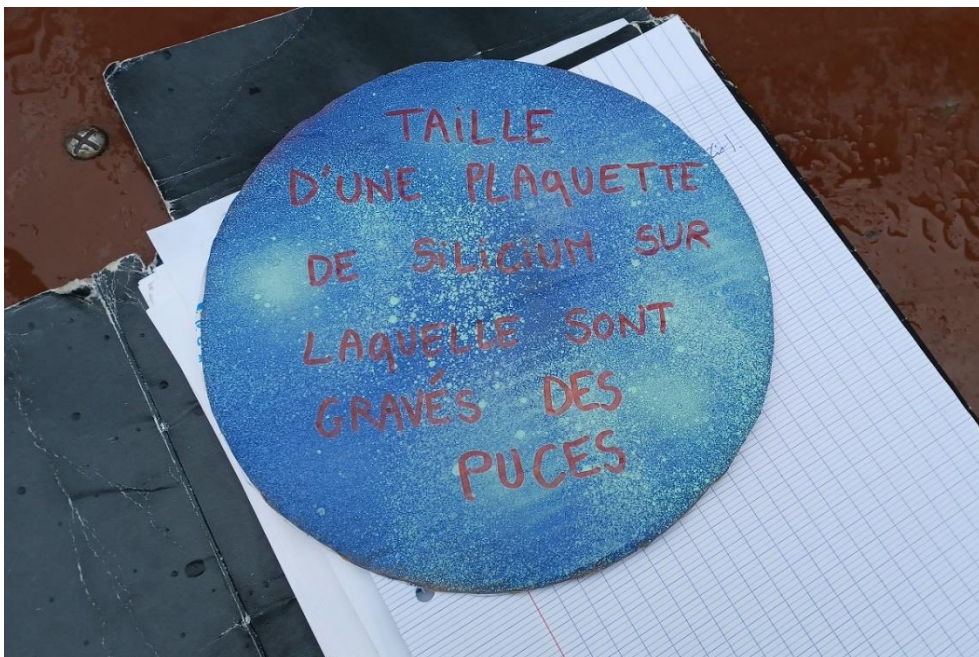 TAiLLE
D'UNE PLAQUETTE
DE SiLiCiUM SUR
LAQUELLE SONT
GRAVÉS DES
PUCES